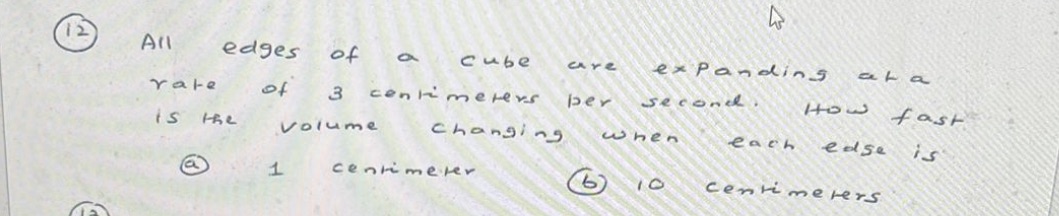 12 All edges of a cube are expanding at a
rate of 3 centimeters per second. How fast
is the volume changing when each edge is
a 1 centimeter b 10 centimeters